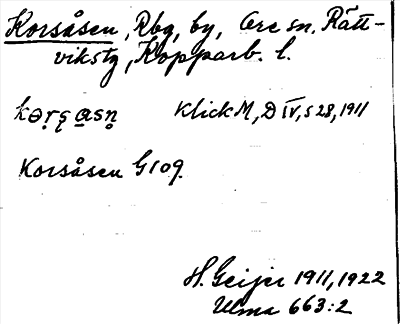 Korsåsen, Rbg, by, Ore sn, Rätt-
vikstg, Kopparb. l.
kərs̨asn̥ Klick M, D IV, s 28, 1911
Korsåsen G109.
H. Geijer 1911, 1922
Ulma 663:2